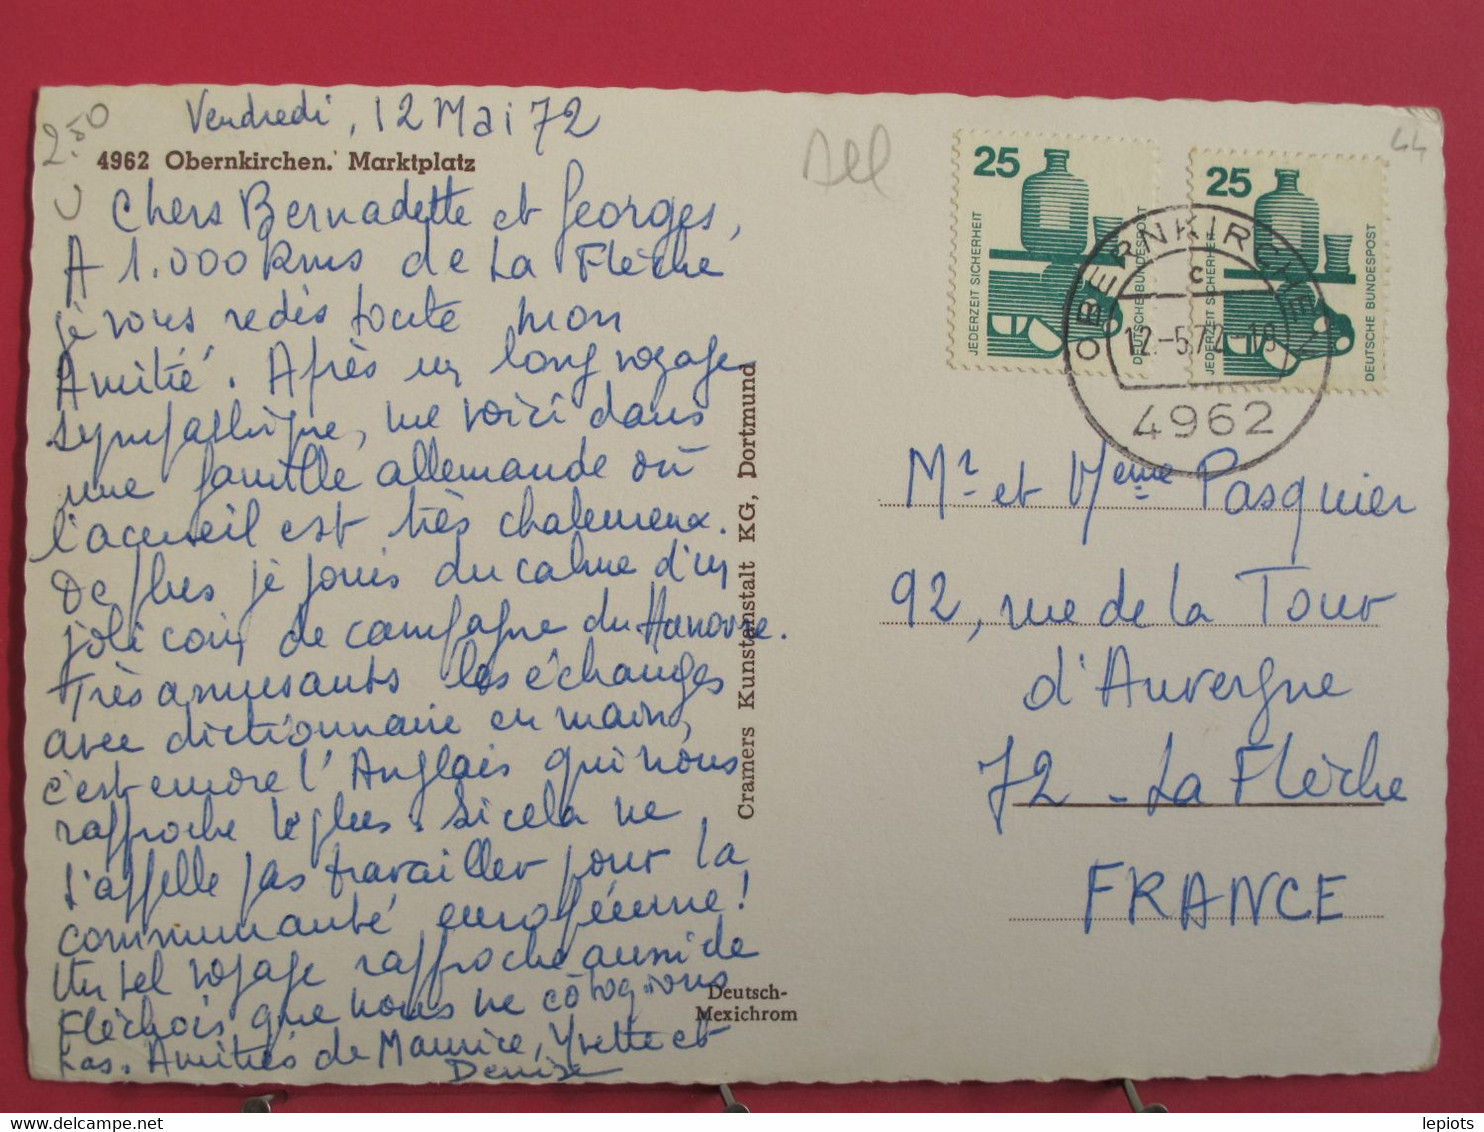 2.50
Vendredi, 12 Mai 72
4962 Obernkirchen. Marktplatz
Chers Bernadette et Georges,
A 1.000 kms de La Flèche
je vous redis toute mon
Amitié. Après un long voyage
sympathique, me voici dans
une famille allemande où
l'accueil est très chaleureux.
De plus je jouis du calme d'un
joli coin de campagne du Hanovre.
Très amusants les échanges
avec dictionnaire en main,
c'est encore l'Anglais qui nous
rapproche le plus. Si cela ne
s'appelle pas travailler pour la
communauté européenne!
Un tel voyage rapproche aussi de
Fléchois que nous ne côtoyions
pas. Amitiés de Maurice, Yvette et
Denise
Cramers Kunstanstalt KG, Dortmund
Deutsch-
Mexichrom
All
44
25
JEDERZEIT SICHERHEIT
DEUTSCHE BUNDESPOST
25
JEDERZEIT SICHERHEIT
DEUTSCHE BUNDESPOST
OBERNKIRCHEN
c
12.-5.72-18
4962
Mr et Mme Pasquier
92, rue de la Tour
d'Auvergne
72 - La Flèche
FRANCE
lepiots